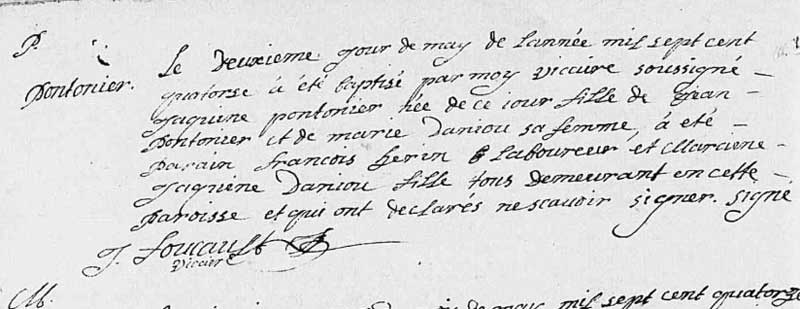 P.
Pontonier.
Le Deuxieme jour de may de lannée mil sept cent
quatorse à été baptisé par moy viccaire soussigné
jaquine pontonier née de ce jour fille de jean
pontonier et de marie Daniou sa femme, à été
parain francois herin laboureur et Maraine
jaquine Daniou fille tous demeurant en cette
paroisse et qui ont declarés ne scavoir signer. signé
J. foucault
viccaire
M.
de may mil sept cent quatorze